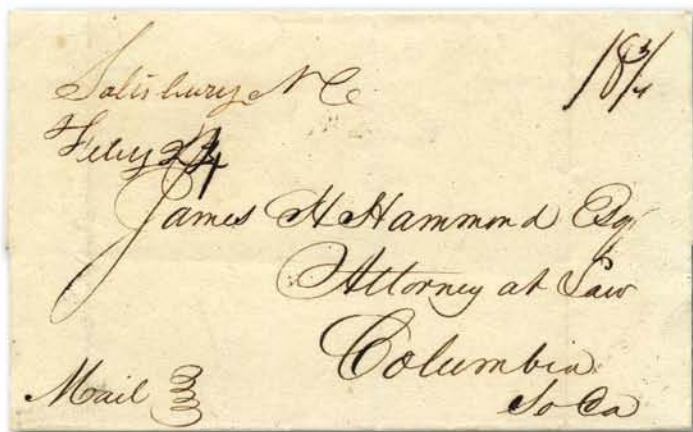 Salisbury N C
18 3/4
Feby 24
James H Hammond Esqr
Attorney at Law
Columbia
So Ca
Mail